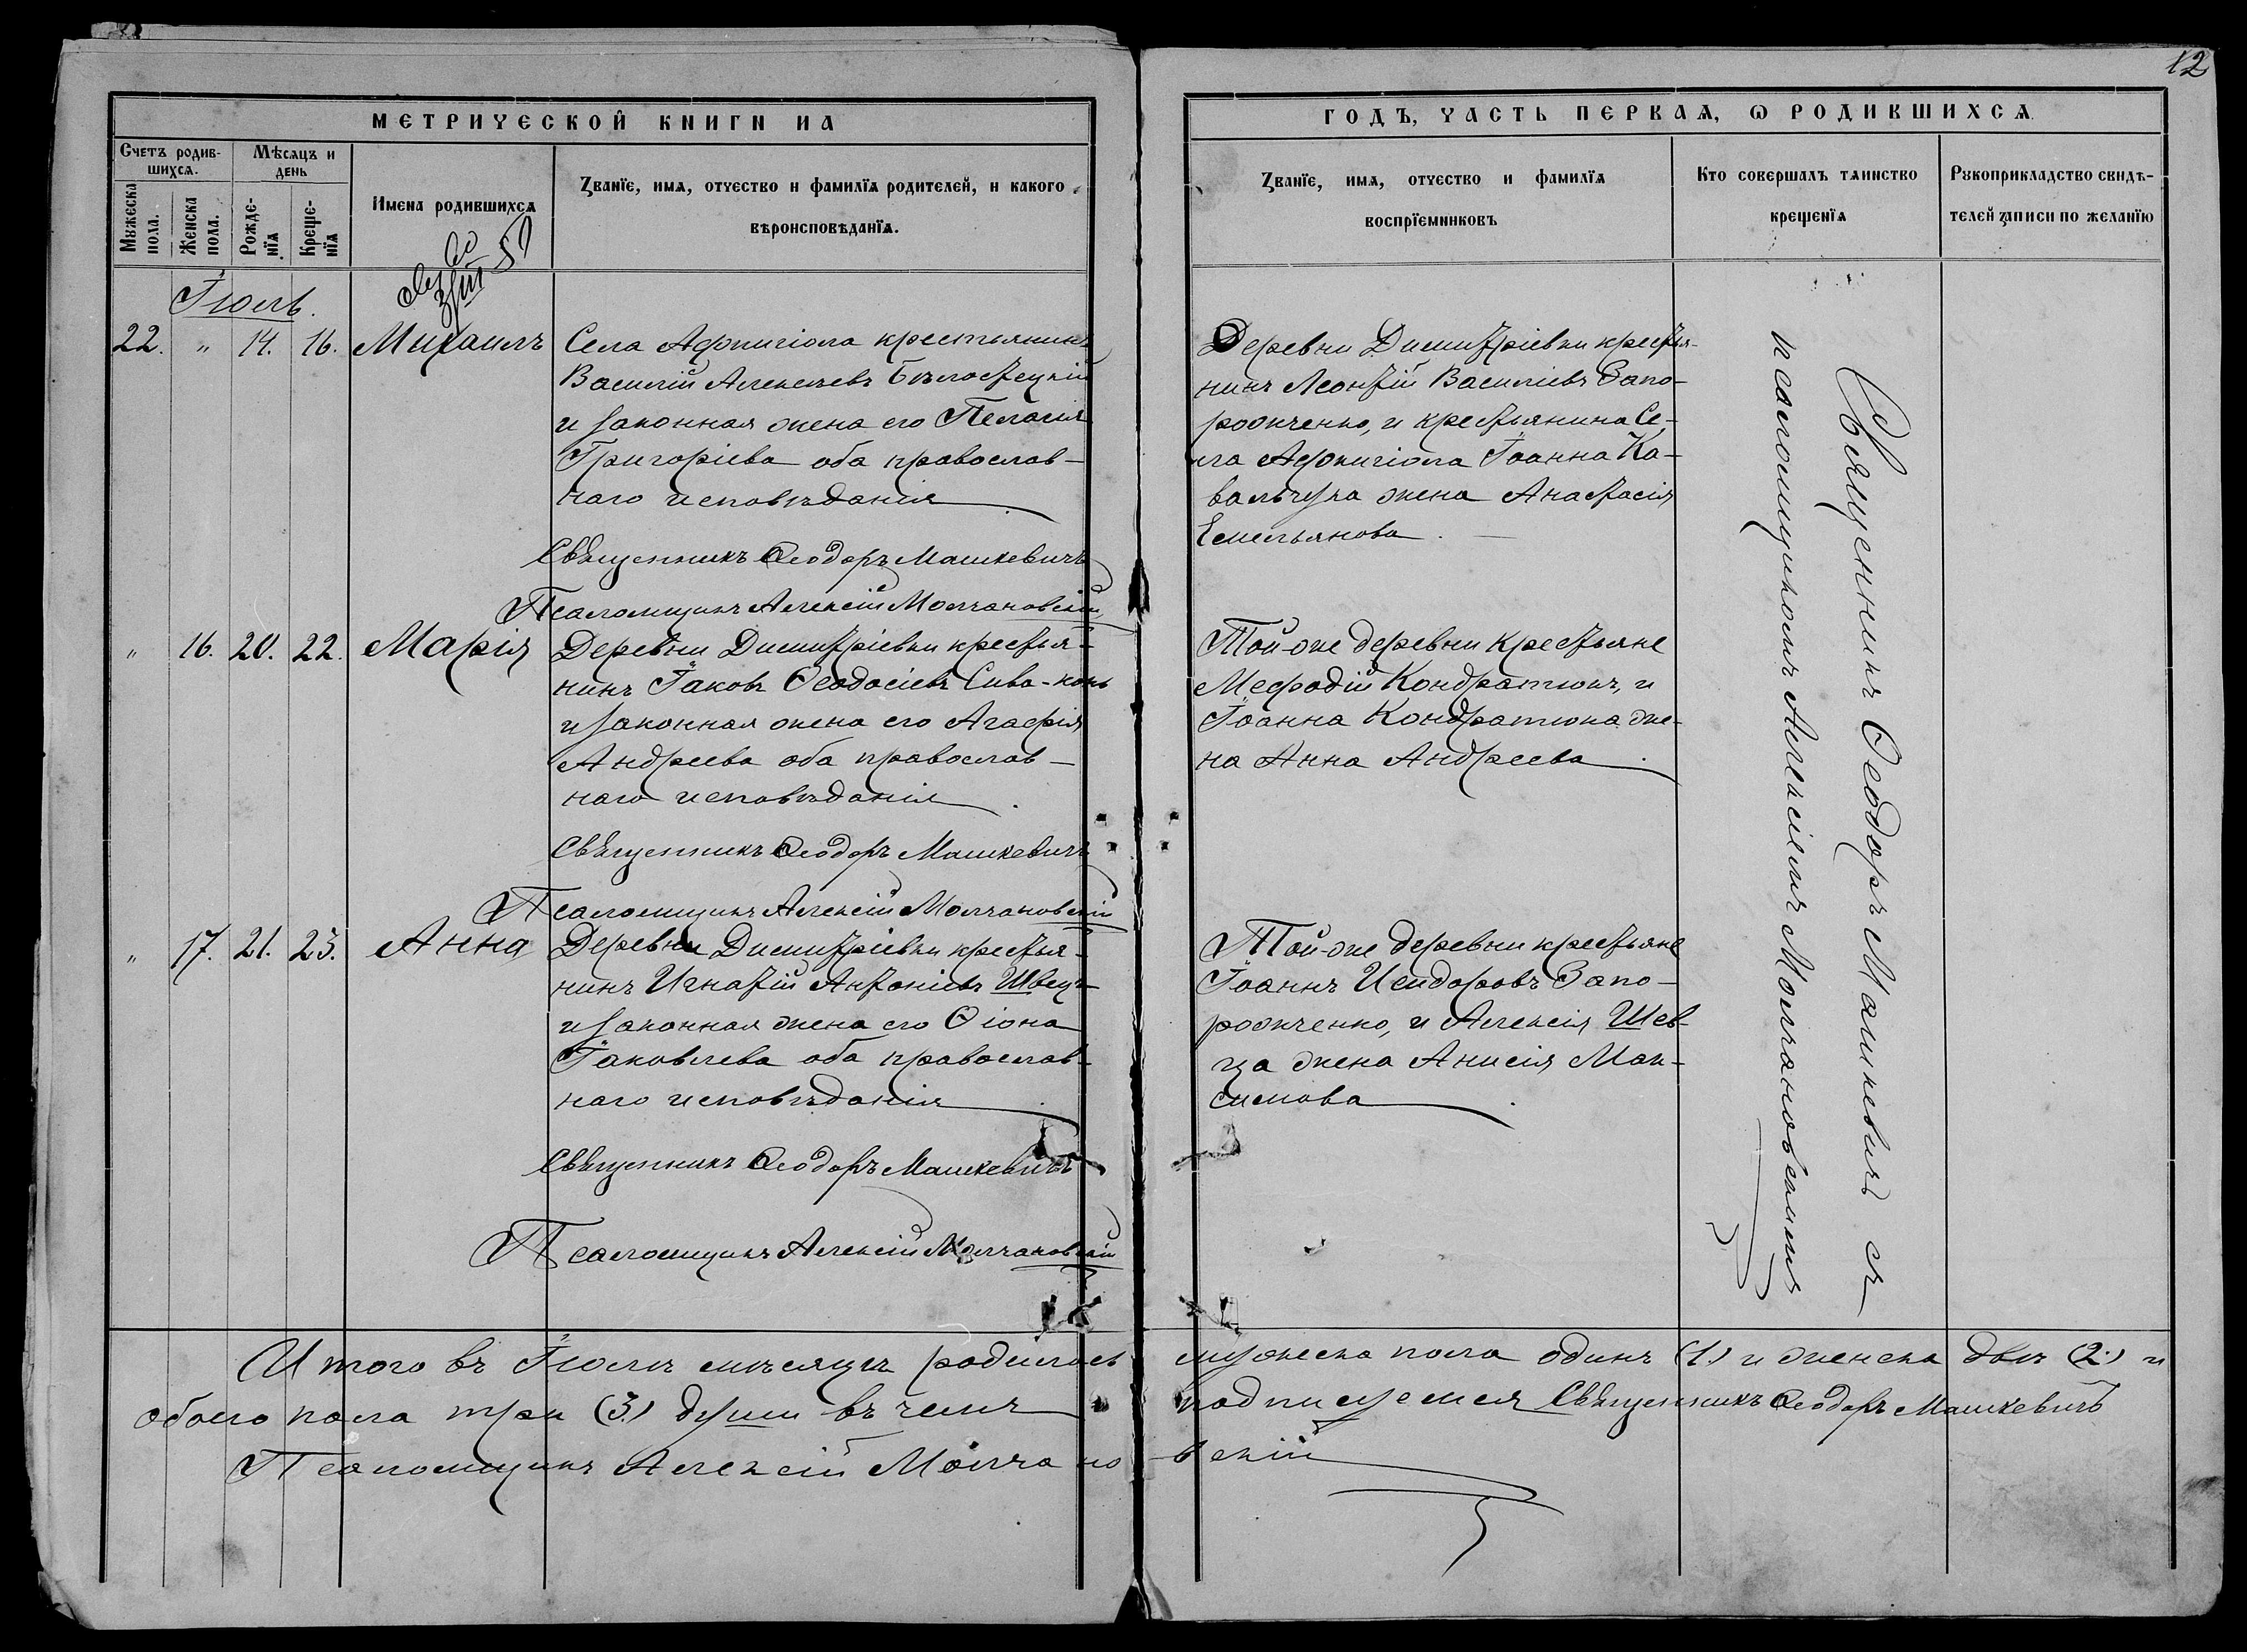 12
МЕТРИЧЕСКОЙ КНИГИ НА
ГОДЪ, ЧАСТЬ ПЕРВАЯ, Ѡ РОДИВШИХСЯ
Счетъ родив-
шихся.
Мужеска
пола.
Женска
пола.
Мѣсяцъ и
день
Рожде-
нїя
Креще-
нїя
Имена родившихся
Званїе, имя, отчество и фамилїя родителей, и какого
вѣроисповѣданїя.
Званїе, имя, отчество и фамилїя
воспрїемниковъ
Кто совершалъ таинство
крещенїя
Рукоприкладство свидѣ-
телей записи по желанїю
Іюль.
22. " 14. 16. Михаилъ
Села Афонигіола крестьянинъ
Василій Алексѣевъ Бѣлостецкій
и законная жена его Пелагія
Григоріева оба православ-
наго исповѣданія
Священникъ Ѳеодоръ Машкевичъ
Псаломщикъ Алексій Молчановскій
Деревни Димитріевки крестья-
нинъ Леонтій Василіевъ Запо-
рожченко, и крестьянина Се-
ла Афонигіола Іоанна Ка-
вальчука жена Анастасія
Емельянова.
" 16. 20. 22. Марія
Деревни Димитріевки крестья-
нинъ Іаковъ Ѳеодосіевъ Сива-конь
и законная жена его Агафія
Андреева оба православ-
наго исповѣданія.
Священникъ Ѳеодоръ Машкевичъ
Псаломщикъ Алексій Молчановскій
Той-же деревни крестьяне
Мефодій Кондратюкъ, и
Іоанна Кондратюка же-
на Анна Андреева.
" 17. 21. 23. Анна
Деревни Димитріевки крестья-
нинъ Игнатій Антоніевъ Швецъ
и законная жена его Ѳіона
Іаковлева оба православ-
наго исповѣданія.
Священникъ Ѳеодоръ Машкевичъ
Псаломщикъ Алексій Молчановскій
Той-же деревни крестьяне
Іоаннъ Исидоровъ Запо-
рожченко, и Алексія Шев-
ца жена Анисія Мак-
симова.
Священникъ Ѳеодоръ Машкевичъ съ
псаломщикомъ Алексіемъ Молчановскимъ
Итого въ Іюлѣ мѣсяцѣ родилось мужеска пола одинъ (1.) и женска двѣ (2.) и
обоего пола три (3.) души въ чемъ подписуемся Священникъ Ѳеодоръ Машкевичъ
Псаломщикъ Алексій Молчановскій